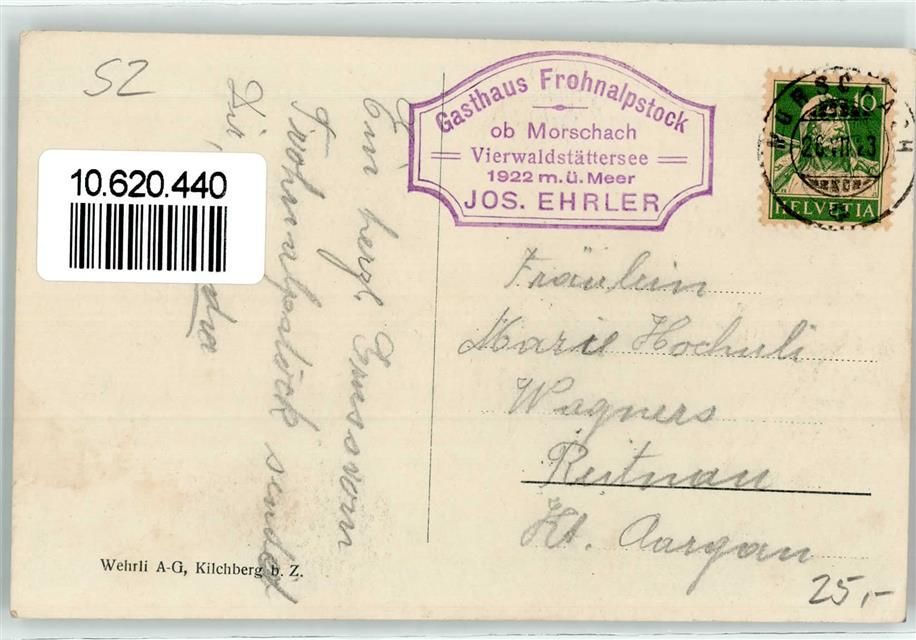 52
Gasthaus Frohnalpstock
ob Morschach
Vierwaldstättersee
1922 m. ü. Meer
JOS. EHRLER
MORSCHACH
10
HELVETIA
10.620.440
Ein bergl. Gruss vom
Frohnalpstock sendet
Dir,
Fräulein
Marie Hochuli
Wagners
Reitnau
Kt. Aargau
Wehrli A-G, Kilchberg b. Z.
25,-